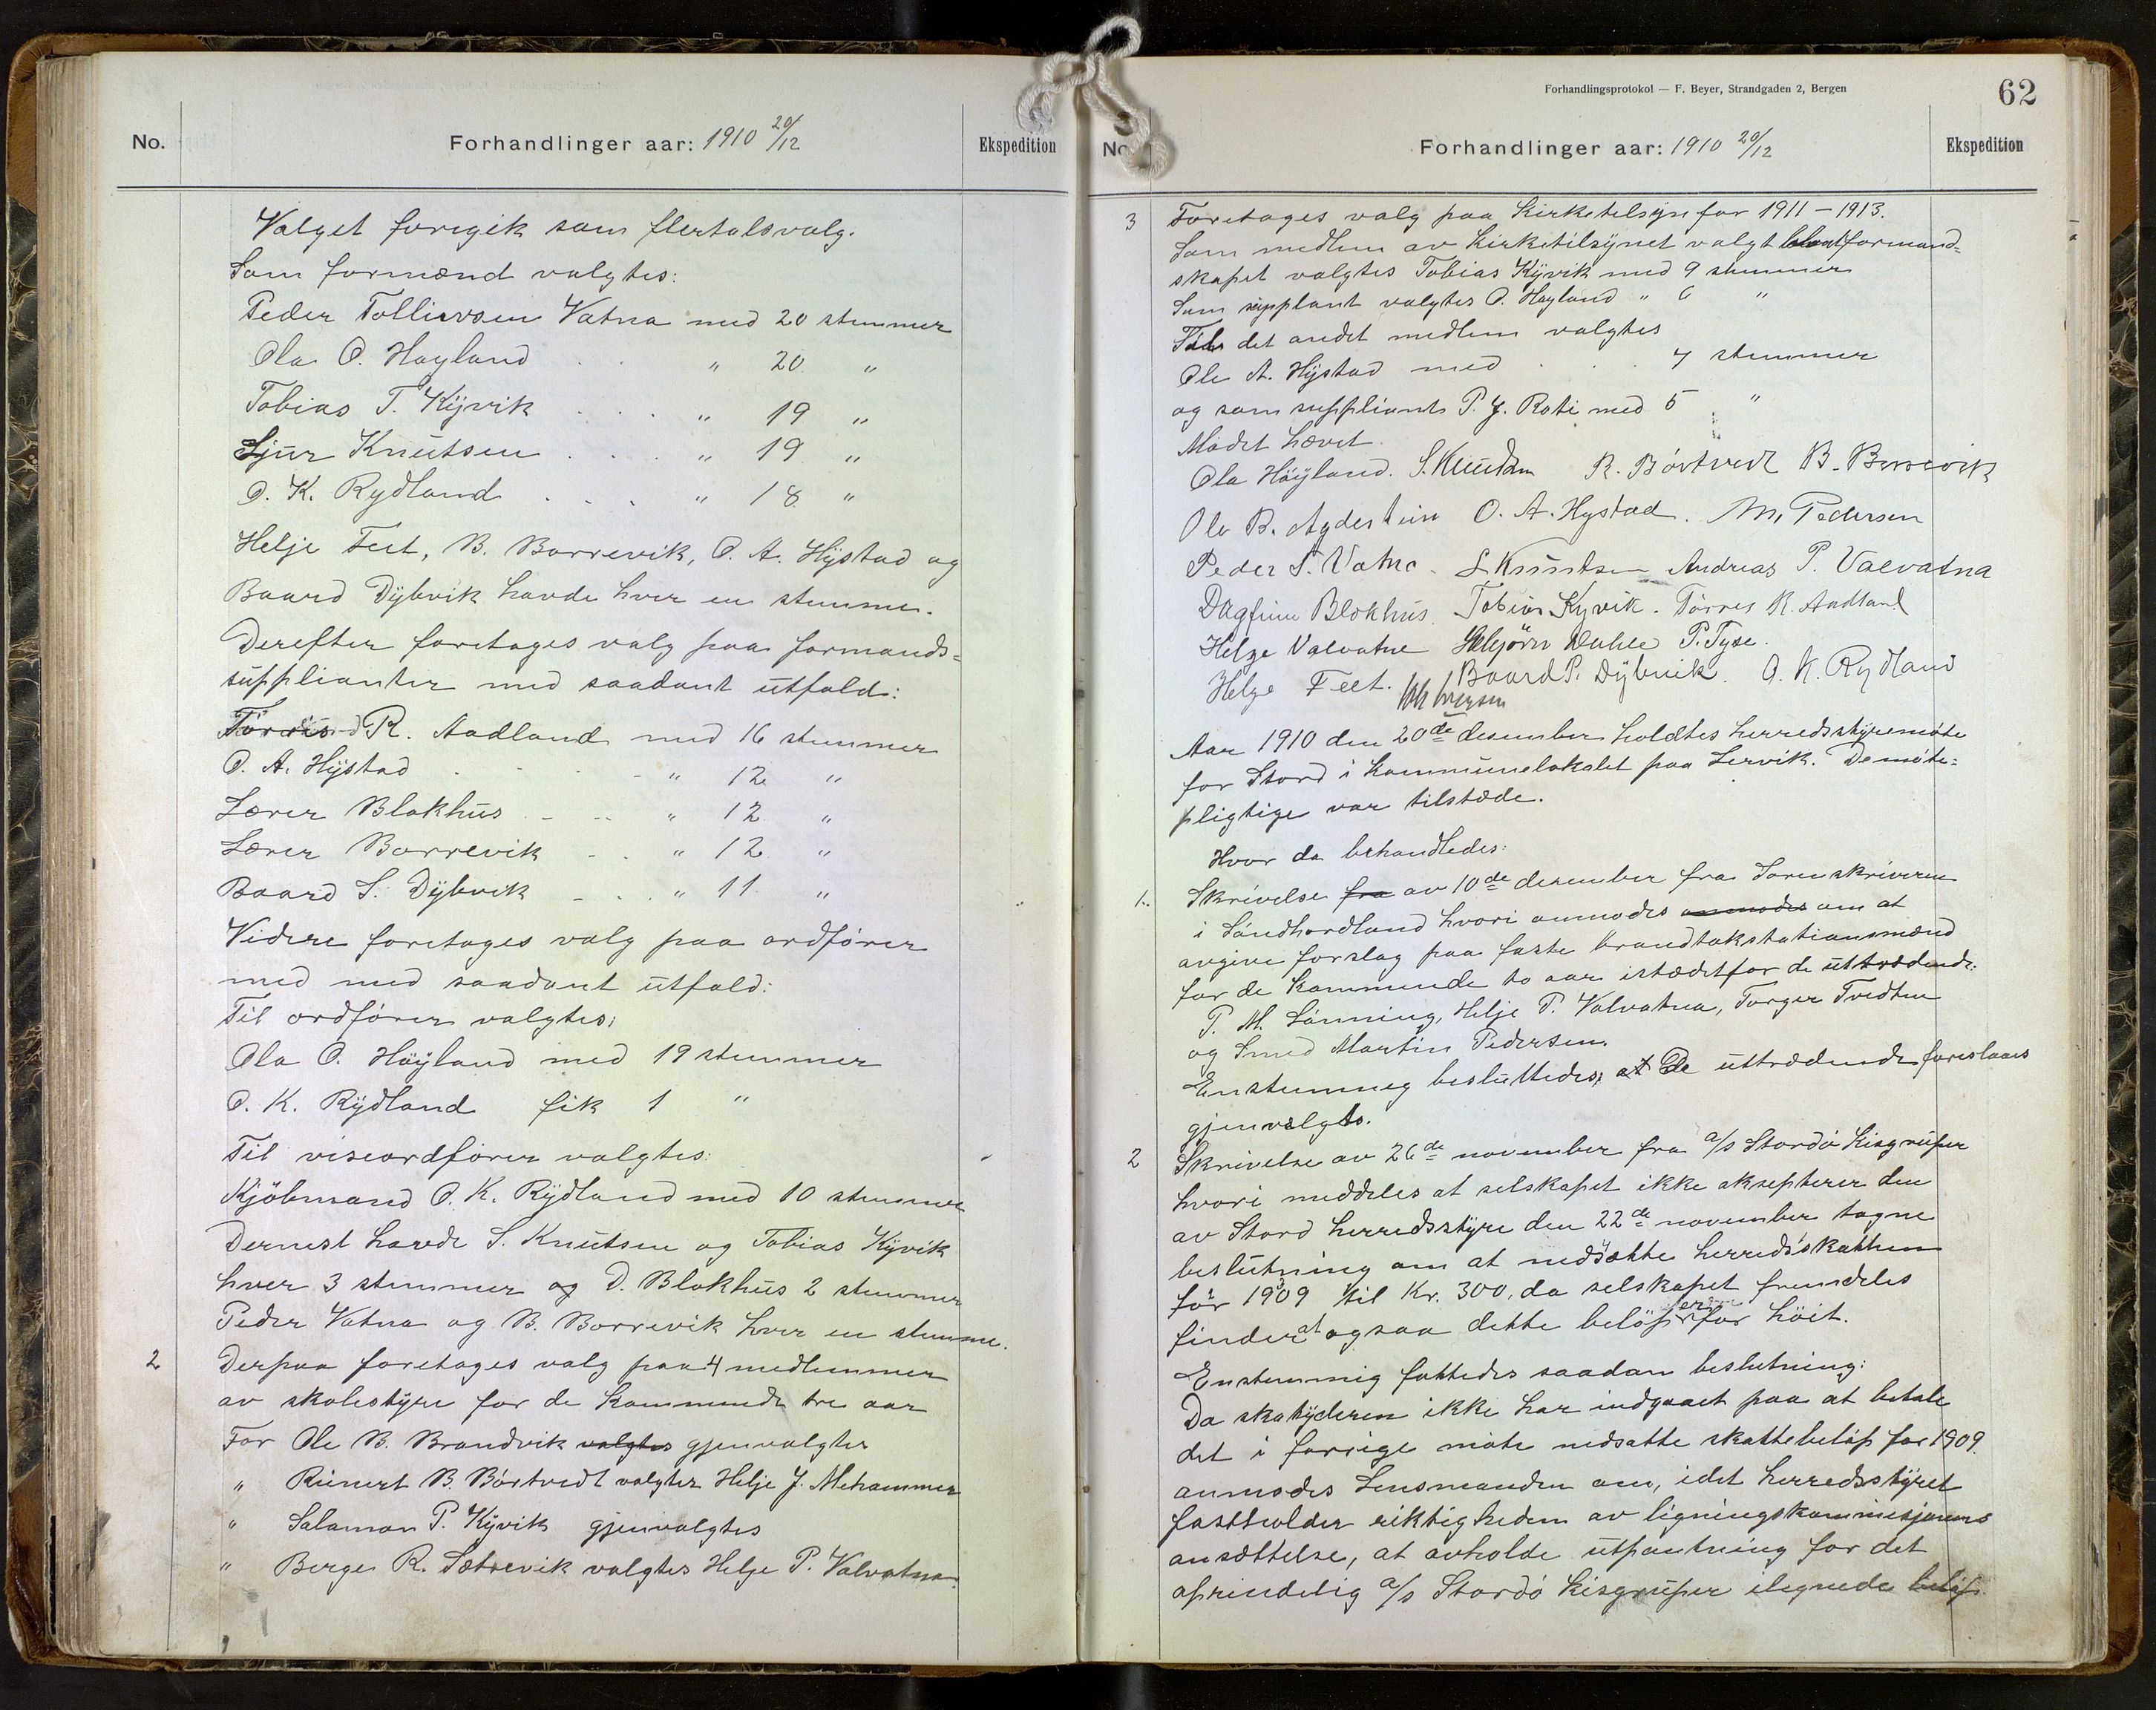 No.
Forhandlinger aar: 1910 20/12
Ekspedition
Valget foregik som flertalsvalg.
Som formænd valgtes:
Peder Tollievsen Vatna med 20 stemmer
Ola O. Høyland . . " 20 "
Tobias T. Kÿvik . . . " 19 "
Sjur Knutsen . . . " 19 "
O. K. Rydland . . . " 18 "
Helje Feet, B. Borrevik, O. A. Hÿstad og
Baard Dÿbvik havde hver en stemme.
Derefter foretages valg paa formands=
supplianter med saadant utfald:
Tørris R. Aadland med 16 stemmer
O. A. Hÿstad . . . . " 12 "
Lærer Blokhus . . . " 12 "
Lærer Borrevik . . " 12 "
Baard S. Dÿbvik . . . " 11 "
Videre foretages valg paa ordfører
med med saadant utfald:
Til ordfører valgtes;
Ola O. Høÿland med 19 stemmer
O. K. Rÿdland fik 1 "
Til viseordfører valgtes:
Kjøbmand O. K. Rÿdland med 10 stemmer
Dernest havde S. Knutsen og Tobias Kÿvik
hver 3 stemmer og D. Blokhus 2 stemmer
Peder Vatna og B. Borrevik hver en stemme.
2 Derpaa foretages valg paa 4 medlemmer
av skolestÿre for de kommende tre aar
For Ole B. Brandvik valgtes gjenvalgtes
" Reinert B. Børtvedt valgtes Helje J. Mehammer
" Salamon P. Kÿvik gjenvalgtes
" Berge R. Sætrevik valgtes Helje P. Valvatna.
Forhandlingsprotokol — F. Beyer, Strandgaden 2, Bergen
62
No.
Forhandlinger aar: 1910 20/12
Ekspedition
3 Foretages valg paa Kirketilsÿn for 1911 – 1913.
Som medlem av Kirketilsÿnet valgt blant formand=
skapet valgtes Tobias Kÿvik med 9 stemmer
Som supplant valgtes O. Høyland " 6 "
Til det andet medlem valgtes
Ole A. Hÿstad med . . . 7 stemmer
og som suppliant P. J. Roti med 5 "
Mødet hævet.
Ola Höÿland. S. Knutsen R. Børtvedt B. Borrevik
Ola B. Agdestein O. A. Hystad. M. Pedersen
Peder T. Vatna. S Knutsen Andreas P. Valvatna
Dagfinn Blokhus. Tobias Kyvik. Tørres R. Aadland
Helge Valvatne Dahle P. Tyse.
Helge Feet. Baard P. Dÿbvik. O. K. Rydland
Aar 1910 den 20de desember holdtes herredsstyremøte
for Stord i kommunelokalet paa Lervik. De møte=
pligtige var tilstæde.
Hvor da behandledes:
1. Skrivelse fra av 10de desember fra Sorenskriveren
i Søndhordland hvori anmodes anmodes om at
avgive forslag paa faste brandtakstationsmænd
for de kommende to aar istædetfor de uttrædende:
P. M. Lønning, Helje P. Valvatna, Torger Tvedten
og Smed Martin Pedersen.
Enstemmig besluttedes; at De uttrædende foreslaaes
gjenvalgt.
2 Skrivelse av 26de november fra a/s Stordø Kisgruper
hvori meddeles at selskapet ikke aksepterer den
av Stord herredsstÿre den 22de november tagne
beslutning om at nedsætte herredsskatten
før 1909 til Kr. 300, da selskapet fremdeles
finder at ogsaa dette beløp er for høit.
Enstemmig fattedes saadan beslutning:
Da skatÿderen ikke har indgaaet paa at betale
det i forrige møte nedsatte skattebeløp for 1909.
anmodes Lensmanden om, idet herredsstÿret
fastholder riktigheden av ligningskommisjonens
ansættelse, at avholde utpantning for det
oprindelig a/s Stordø Kisgruper ilignede beløp.